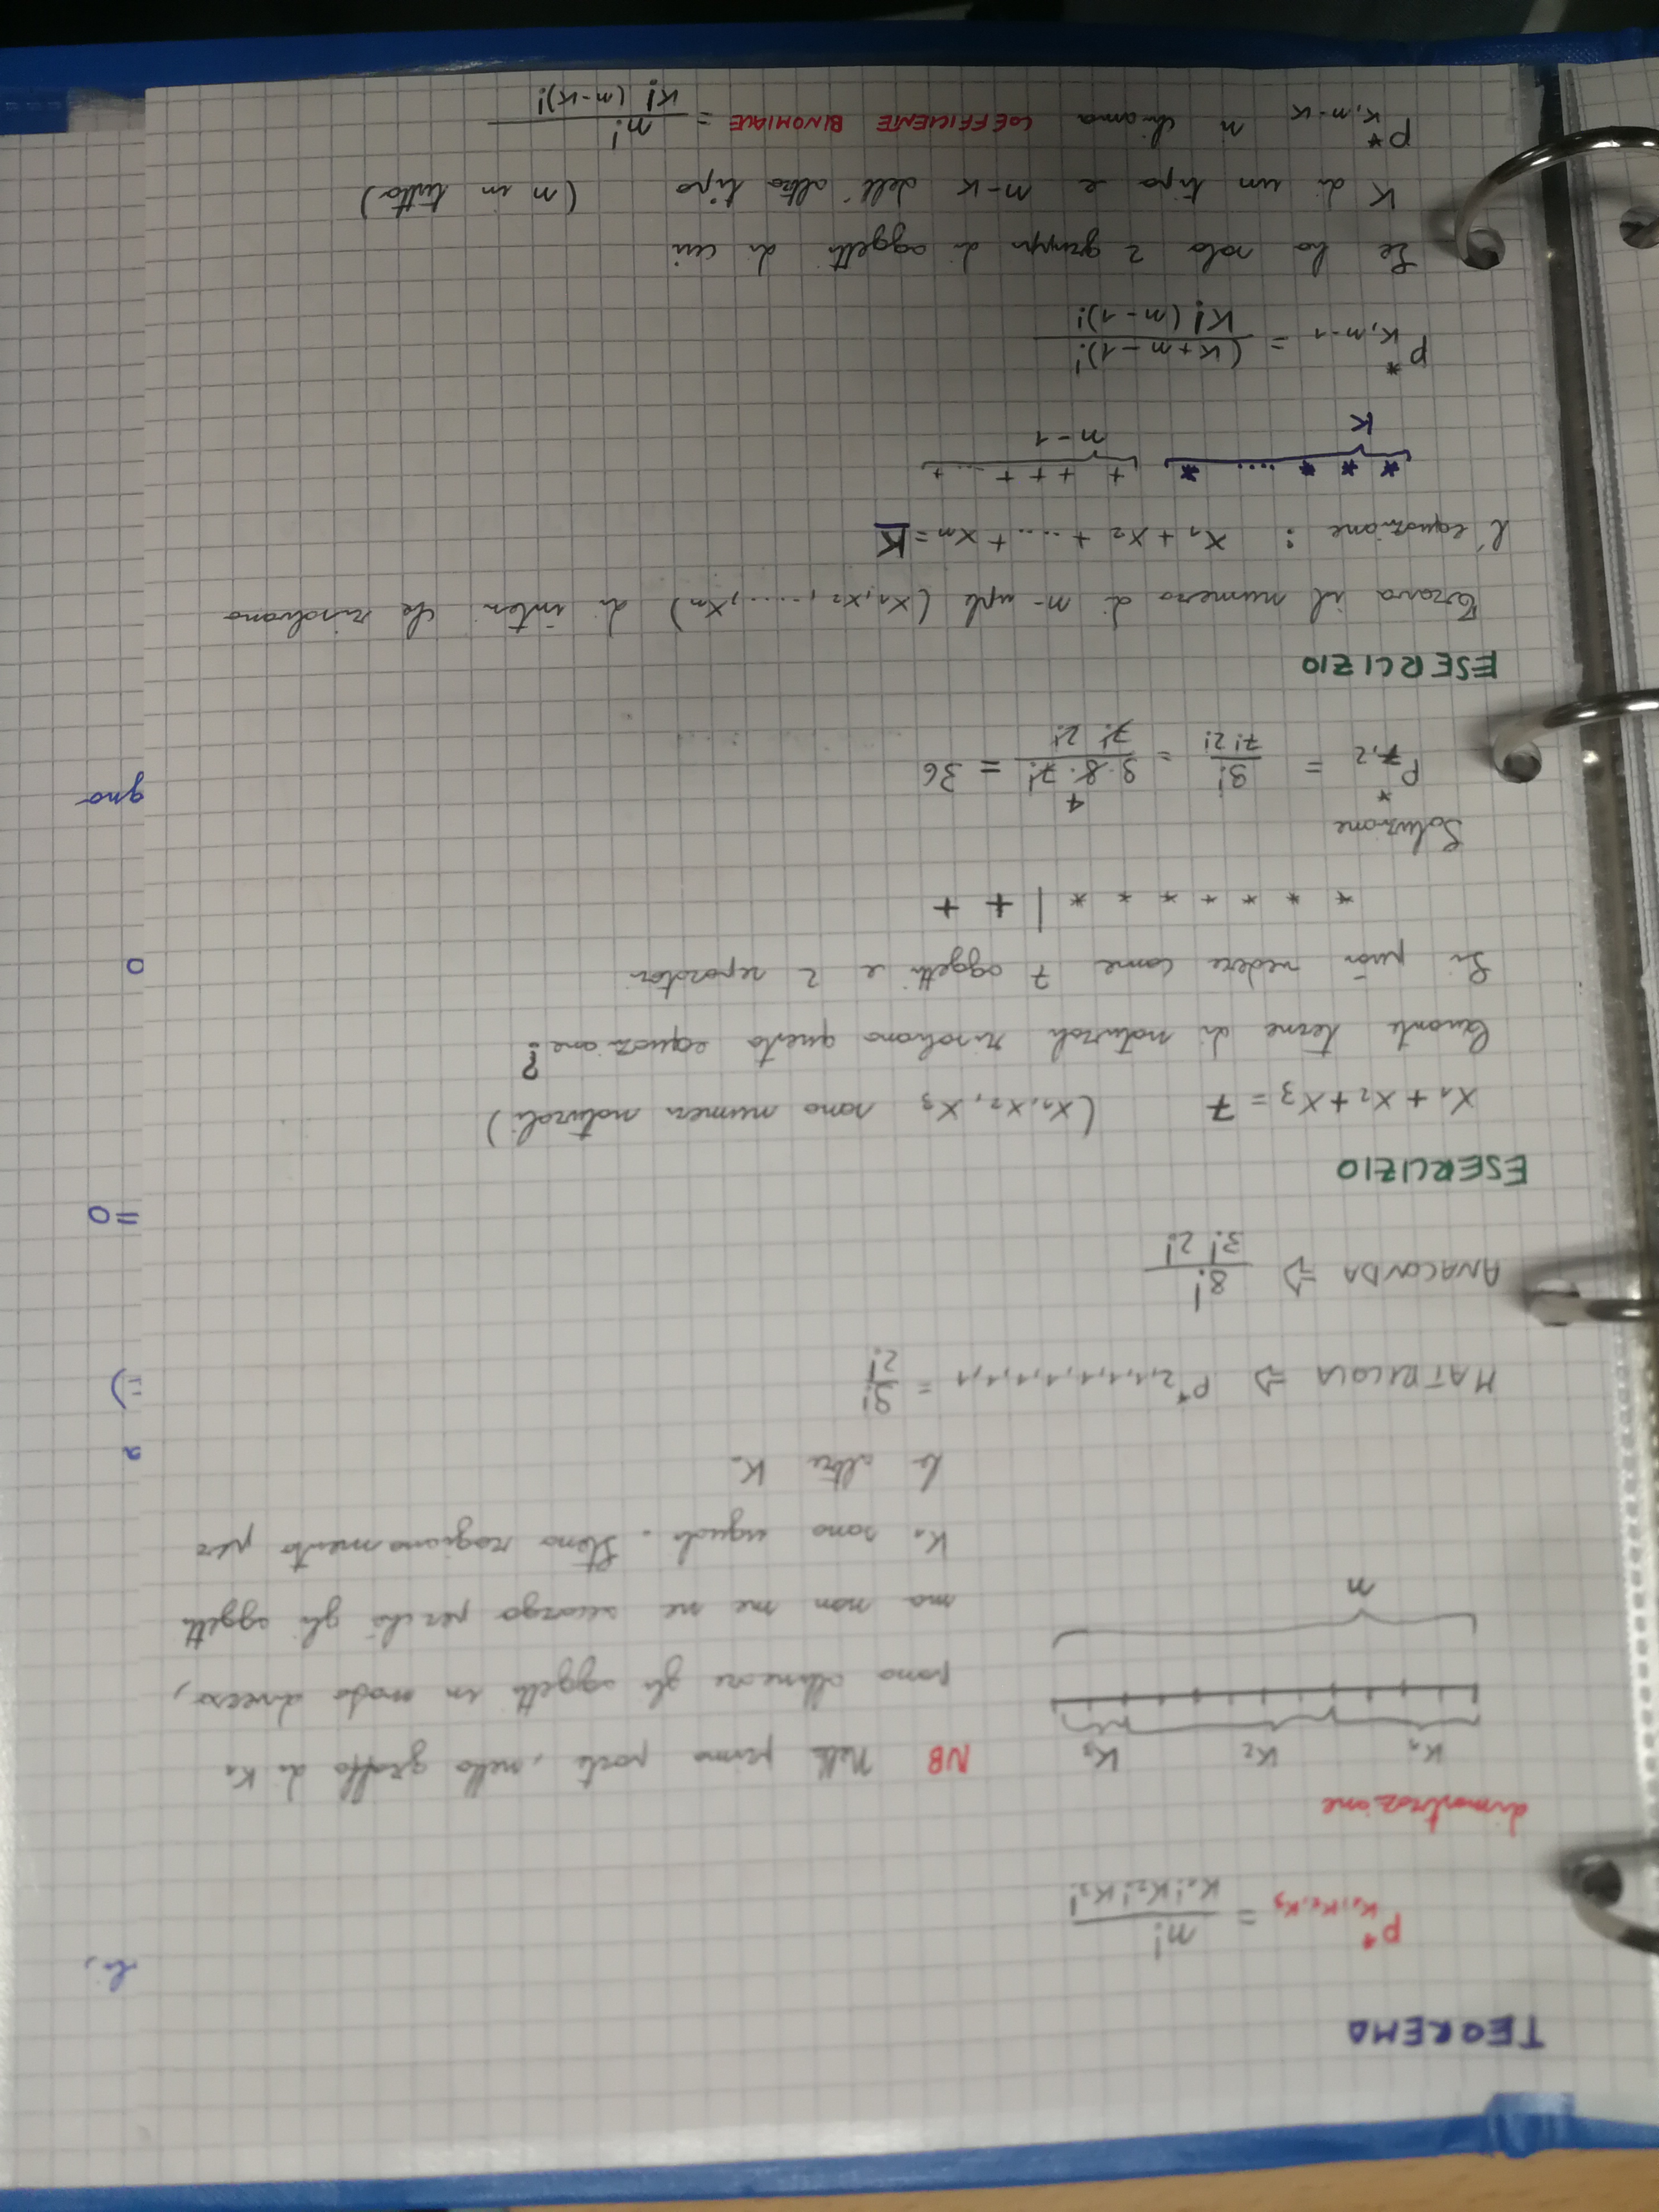 TEOREMA
P*K₁,K₂,K₃ = n! / K₁! K₂! K₃!
dimostrazione
K₁ K₂ K₃
n
NB Nella prima parte, nella graffa di K₁
posso allineare gli oggetti in modo diverso,
ma non me ne accorgo perché gli oggetti
K₁ sono uguali. Stesso ragionamento per
le altre K.
MATRICOLA ⇒ P*2,1,1,1,1,1,1,1 = 9! / 2!
ANACONDA ⇒ 8! / 3! 2!
ESERCIZIO
x₁ + x₂ + x₃ = 7 (x₁, x₂, x₃ sono numeri naturali)
Quante terne di naturali risolvono questa equazione?
Si può vedere come 7 oggetti e 2 separatori
* * * * * * * | + +
Soluzione
P*7,2 = 9! / 7! 2! = 9·8·7! / 7! 2! = 36
4
ESERCIZIO
Trova il numero di n-uple (x₁, x₂, ....., xn) di interi che risolvono
l'equazione : x₁ + x₂ + .... + xn = K
* * * .... * + + + + ... +
K n-1
P*K,n-1 = (K+n-1)! / K! (n-1)!
Se ho solo 2 gruppi di oggetti di cui
K di un tipo e n-K dell'altro tipo (n in tutto)
P*K,n-K si chiama COEFFICIENTE BINOMIALE = n! / K! (n-K)!
li,
a
=)
=0
0
gno